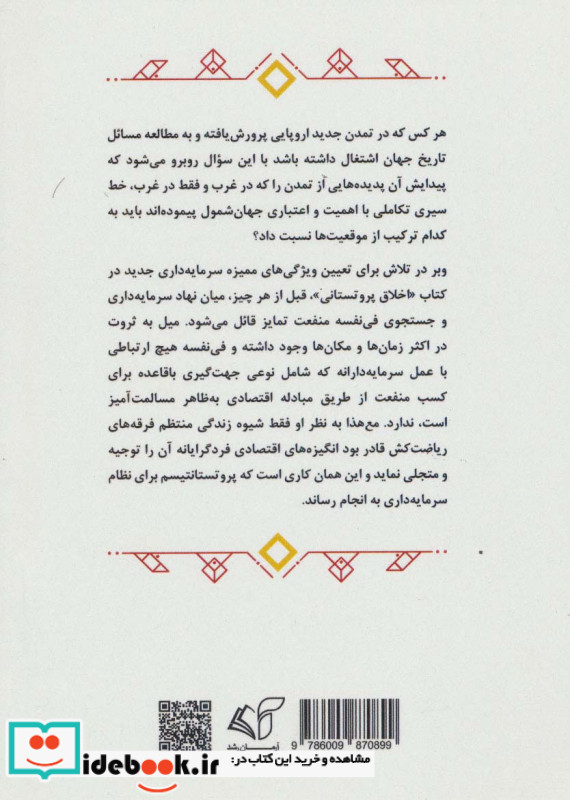 هر کس که در تمدن جدید اروپایی پرورش‌یافته و به مطالعه مسائل
تاریخ جهان اشتغال داشته باشد با این سؤال روبرو می‌شود که
پیدایش آن پدیده‌هایی از تمدن را که در غرب و فقط در غرب، خط
سیری تکاملی با اهمیت و اعتباری جهان‌شمول پیموده‌اند باید به
کدام ترکیب از موقعیت‌ها نسبت داد؟
وبر در تلاش برای تعیین ویژگی‌های ممیزه سرمایه‌داری جدید در
کتاب «اخلاق پروتستانی»، قبل از هر چیز، میان نهاد سرمایه‌داری
و جستجوی فی‌نفسه منفعت تمایز قائل می‌شود. میل به ثروت
در اکثر زمان‌ها و مکان‌ها وجود داشته و فی‌نفسه هیچ ارتباطی
با عمل سرمایه‌دارانه که شامل نوعی جهت‌گیری باقاعده برای
کسب منفعت از طریق مبادله اقتصادی به‌ظاهر مسالمت‌آمیز
است، ندارد. مع‌هذا به نظر او فقط شیوه زندگی منتظم فرقه‌های
ریاضت‌کش قادر بود انگیزه‌های اقتصادی فردگرایانه آن را توجیه
و متجلی نماید و این همان کاری است که پروتستانتیسم برای نظام
سرمایه‌داری به انجام رساند.
آرمان رشد
9 786009 870899
مشاهده و خرید این کتاب در:
idebook.ir